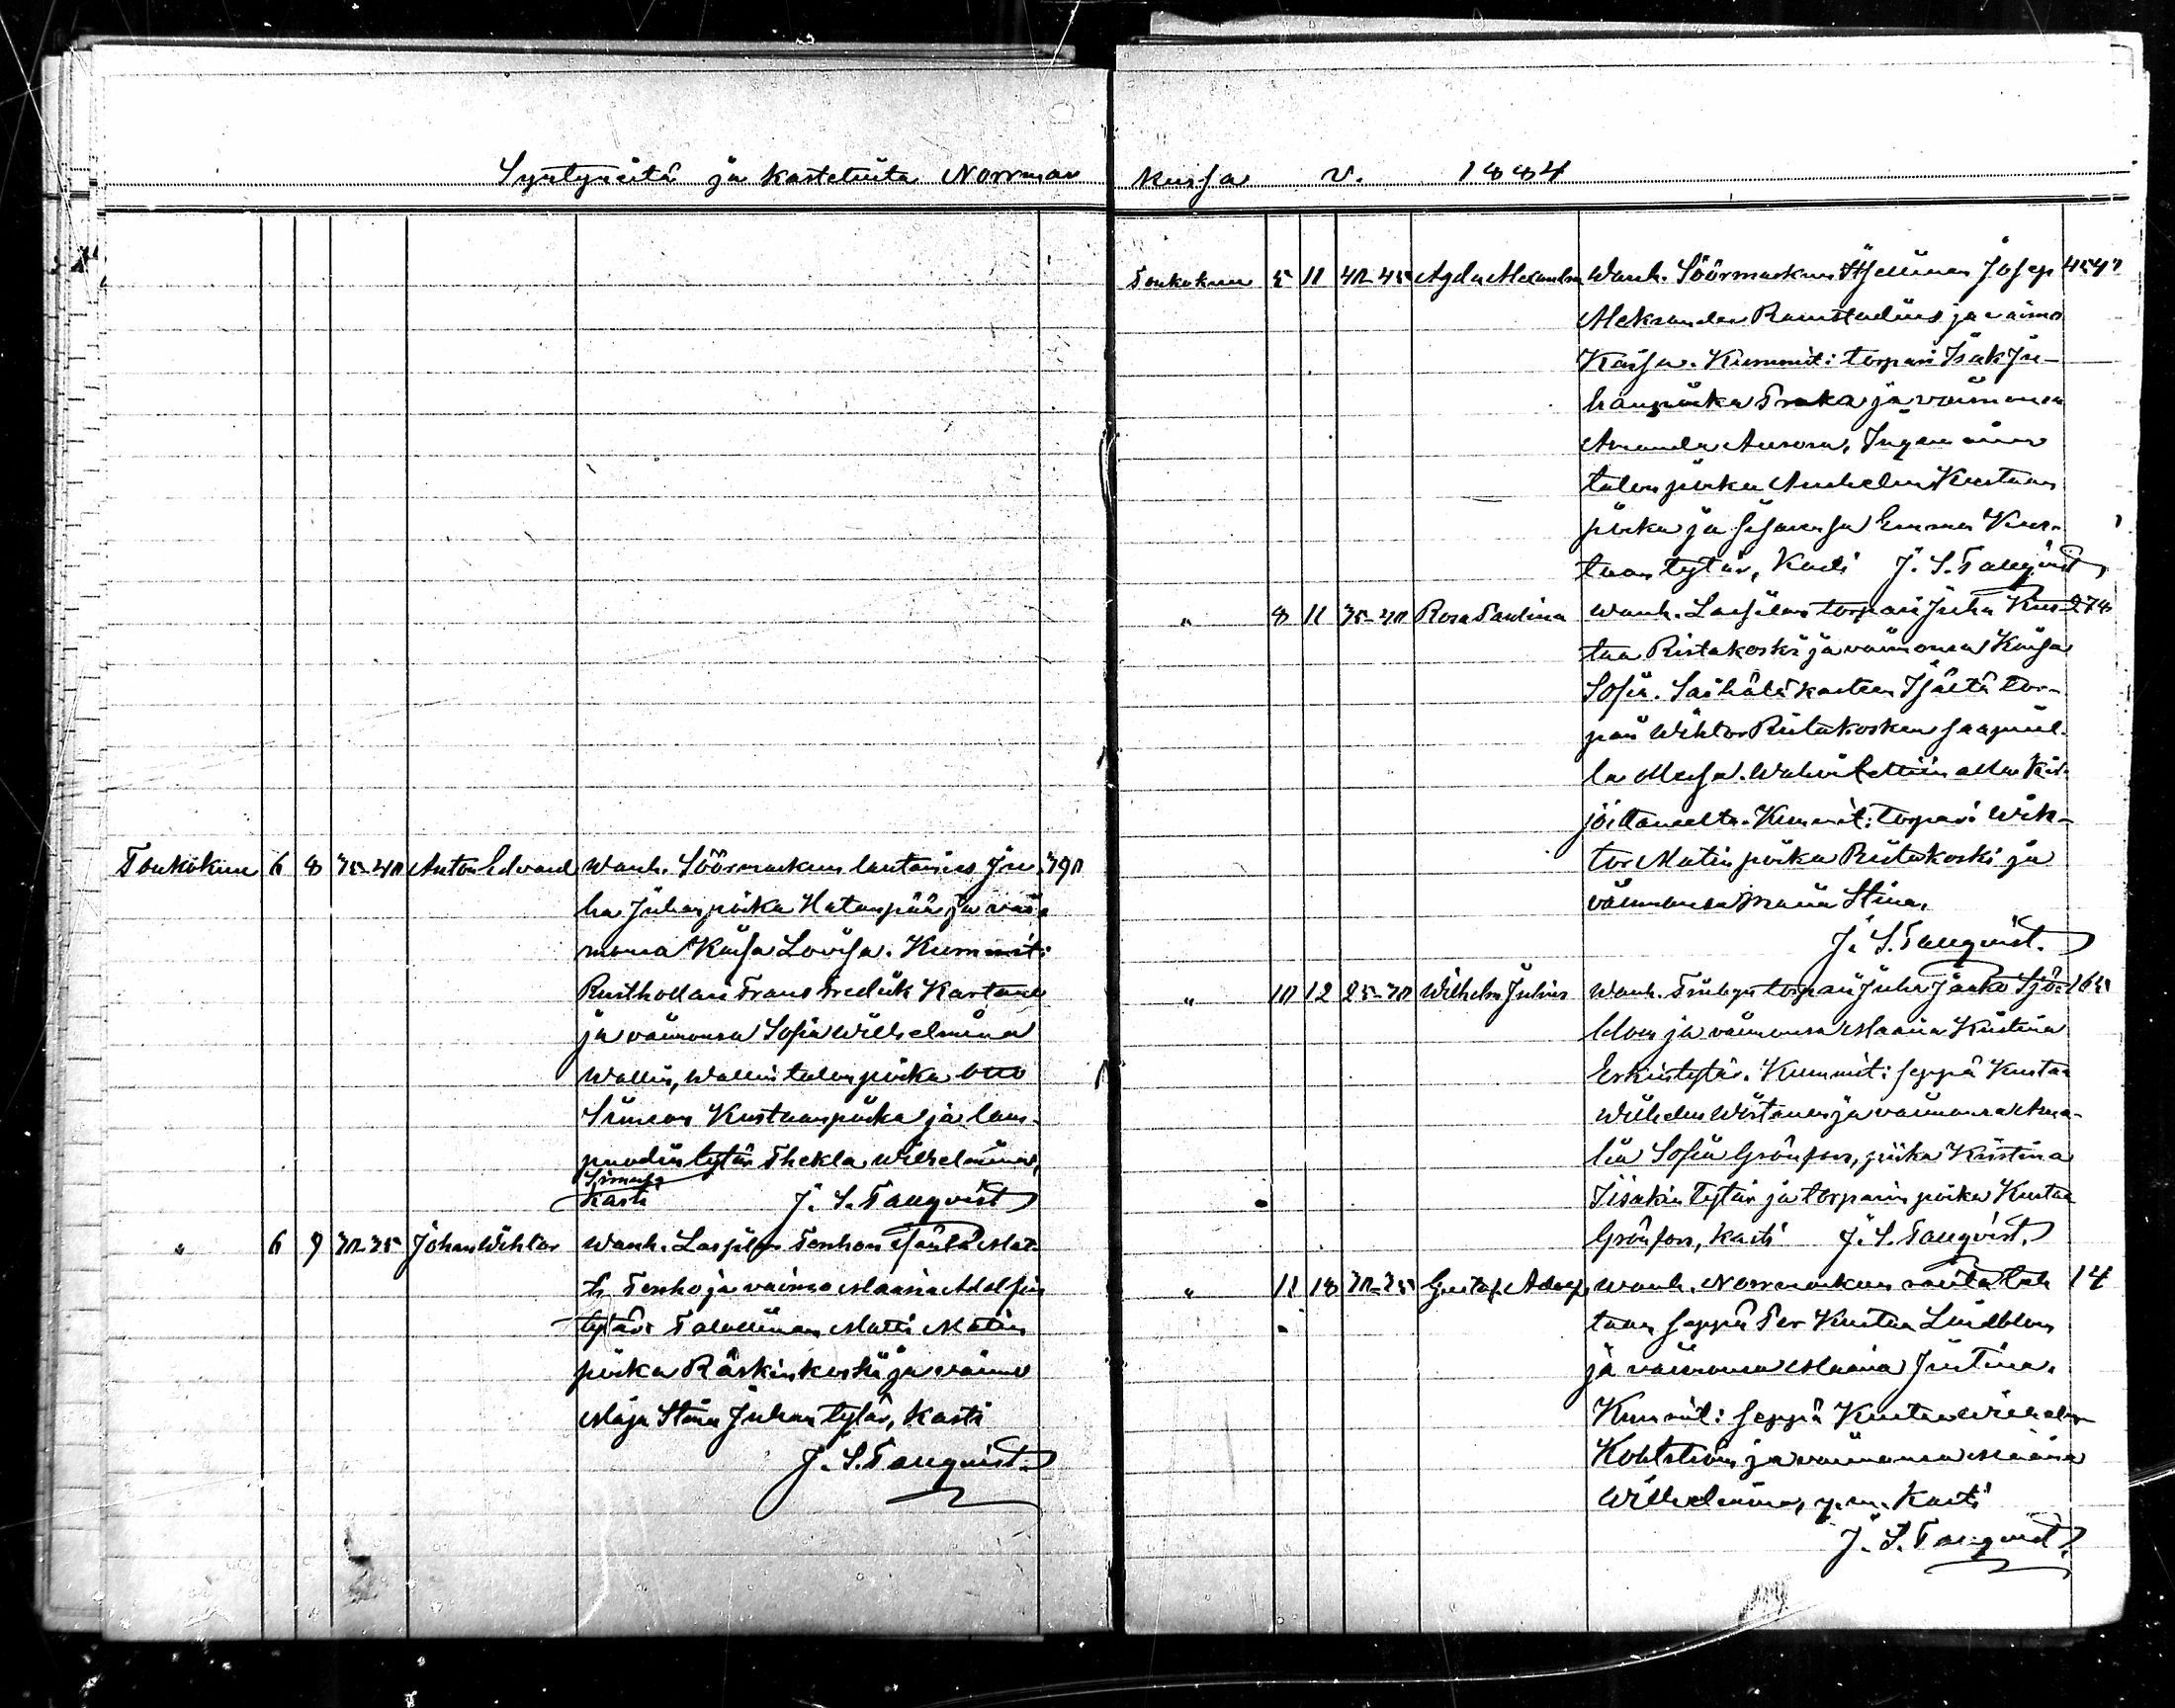 Syntyneitä ja kastetuita Norrmar
Toukokuu 6 8 35-40 Anton Edvard Wanh. Söörmarkun lautamies Ju 390
ha Juhanpoika Hatanpää ja vai
monsa Kaisa Lovisa. Kummit:
Rusthollari Frans Fredrik Kartano
ja vaimonsa Sofia Wilhelmina
Wallin, Wallin talonpoika Otto
Simeon Kustaanpoika ja lam-
puodin tytär Thekla Wilhelmina
Kasti J. S. Tauqvist
" 6 9 30-35 Johan Wihtor Wanh. Lassilan Tenhon Mat
ti Tenho ja vaimo Maaria Adolfin
tytär. Talollinen Matti Matin
poika Räskinkoski ja vaimo
Maja Stina Juhantytär, Kasti
J. S. Tauqvist.
kussa v. 1884
Toukokuu 5 11 40-45 Agda Alexandra Wanh. Söörmarkun Itsellinen Josep
Aleksander Ramstadius ja vaimo
Kaisa. Kummit: torpari Isak Ju-
hanpoika ja vaimonsa
Amanda Aurora,
talonpoika Anshelm Kustaan
poika ja sisarensa Emma Kus-
taan tytär, Kasti J. S. Tauqvist
" 8 11 35-40 Rosa Paulina Wanh. Lassilan torpari Juha Kus 278
taa Ristakoski ja vaimonsa Kaisa
Sofia. Sai hätäkasteen Isältä tor-
pari Wihtor Ristakosken
la Maasa. Wahvistettiin allan kir-
joittaneelta. Kummit: torpari Wik-
tor Matinpoika Ristakoski ja
vaimonsa Maria Stina.
J. S. Tauqvist.
" 10 12 25-30 Wilhelm Julius Wanh. torpari Juha Jaako Sjö-
blom ja vaimonsa Maaria Kristina
Erkintytär. Kummit: seppä Kustaa
Wilhelm Wirtanen ja vaimonsa Ama-
lia Sofia Grönfors, piika Kristina
Iisakin tytär ja torparin poika Kustaa
Grönfors, Kasti J. S. Tauqvist.
" 11 18 30-35 Gustaf Adolf Wanh. Norrmarkun rautateh 14
taan seppä Per Kustaa Lindblom
ja vaimonsa Maaria Justina.
Kummit: seppä Kustaa Wilhelm
Kohlström ja vaimonsa Maaria
Wilhelmina, y. m. Kasti
J. S. Tauqvist.